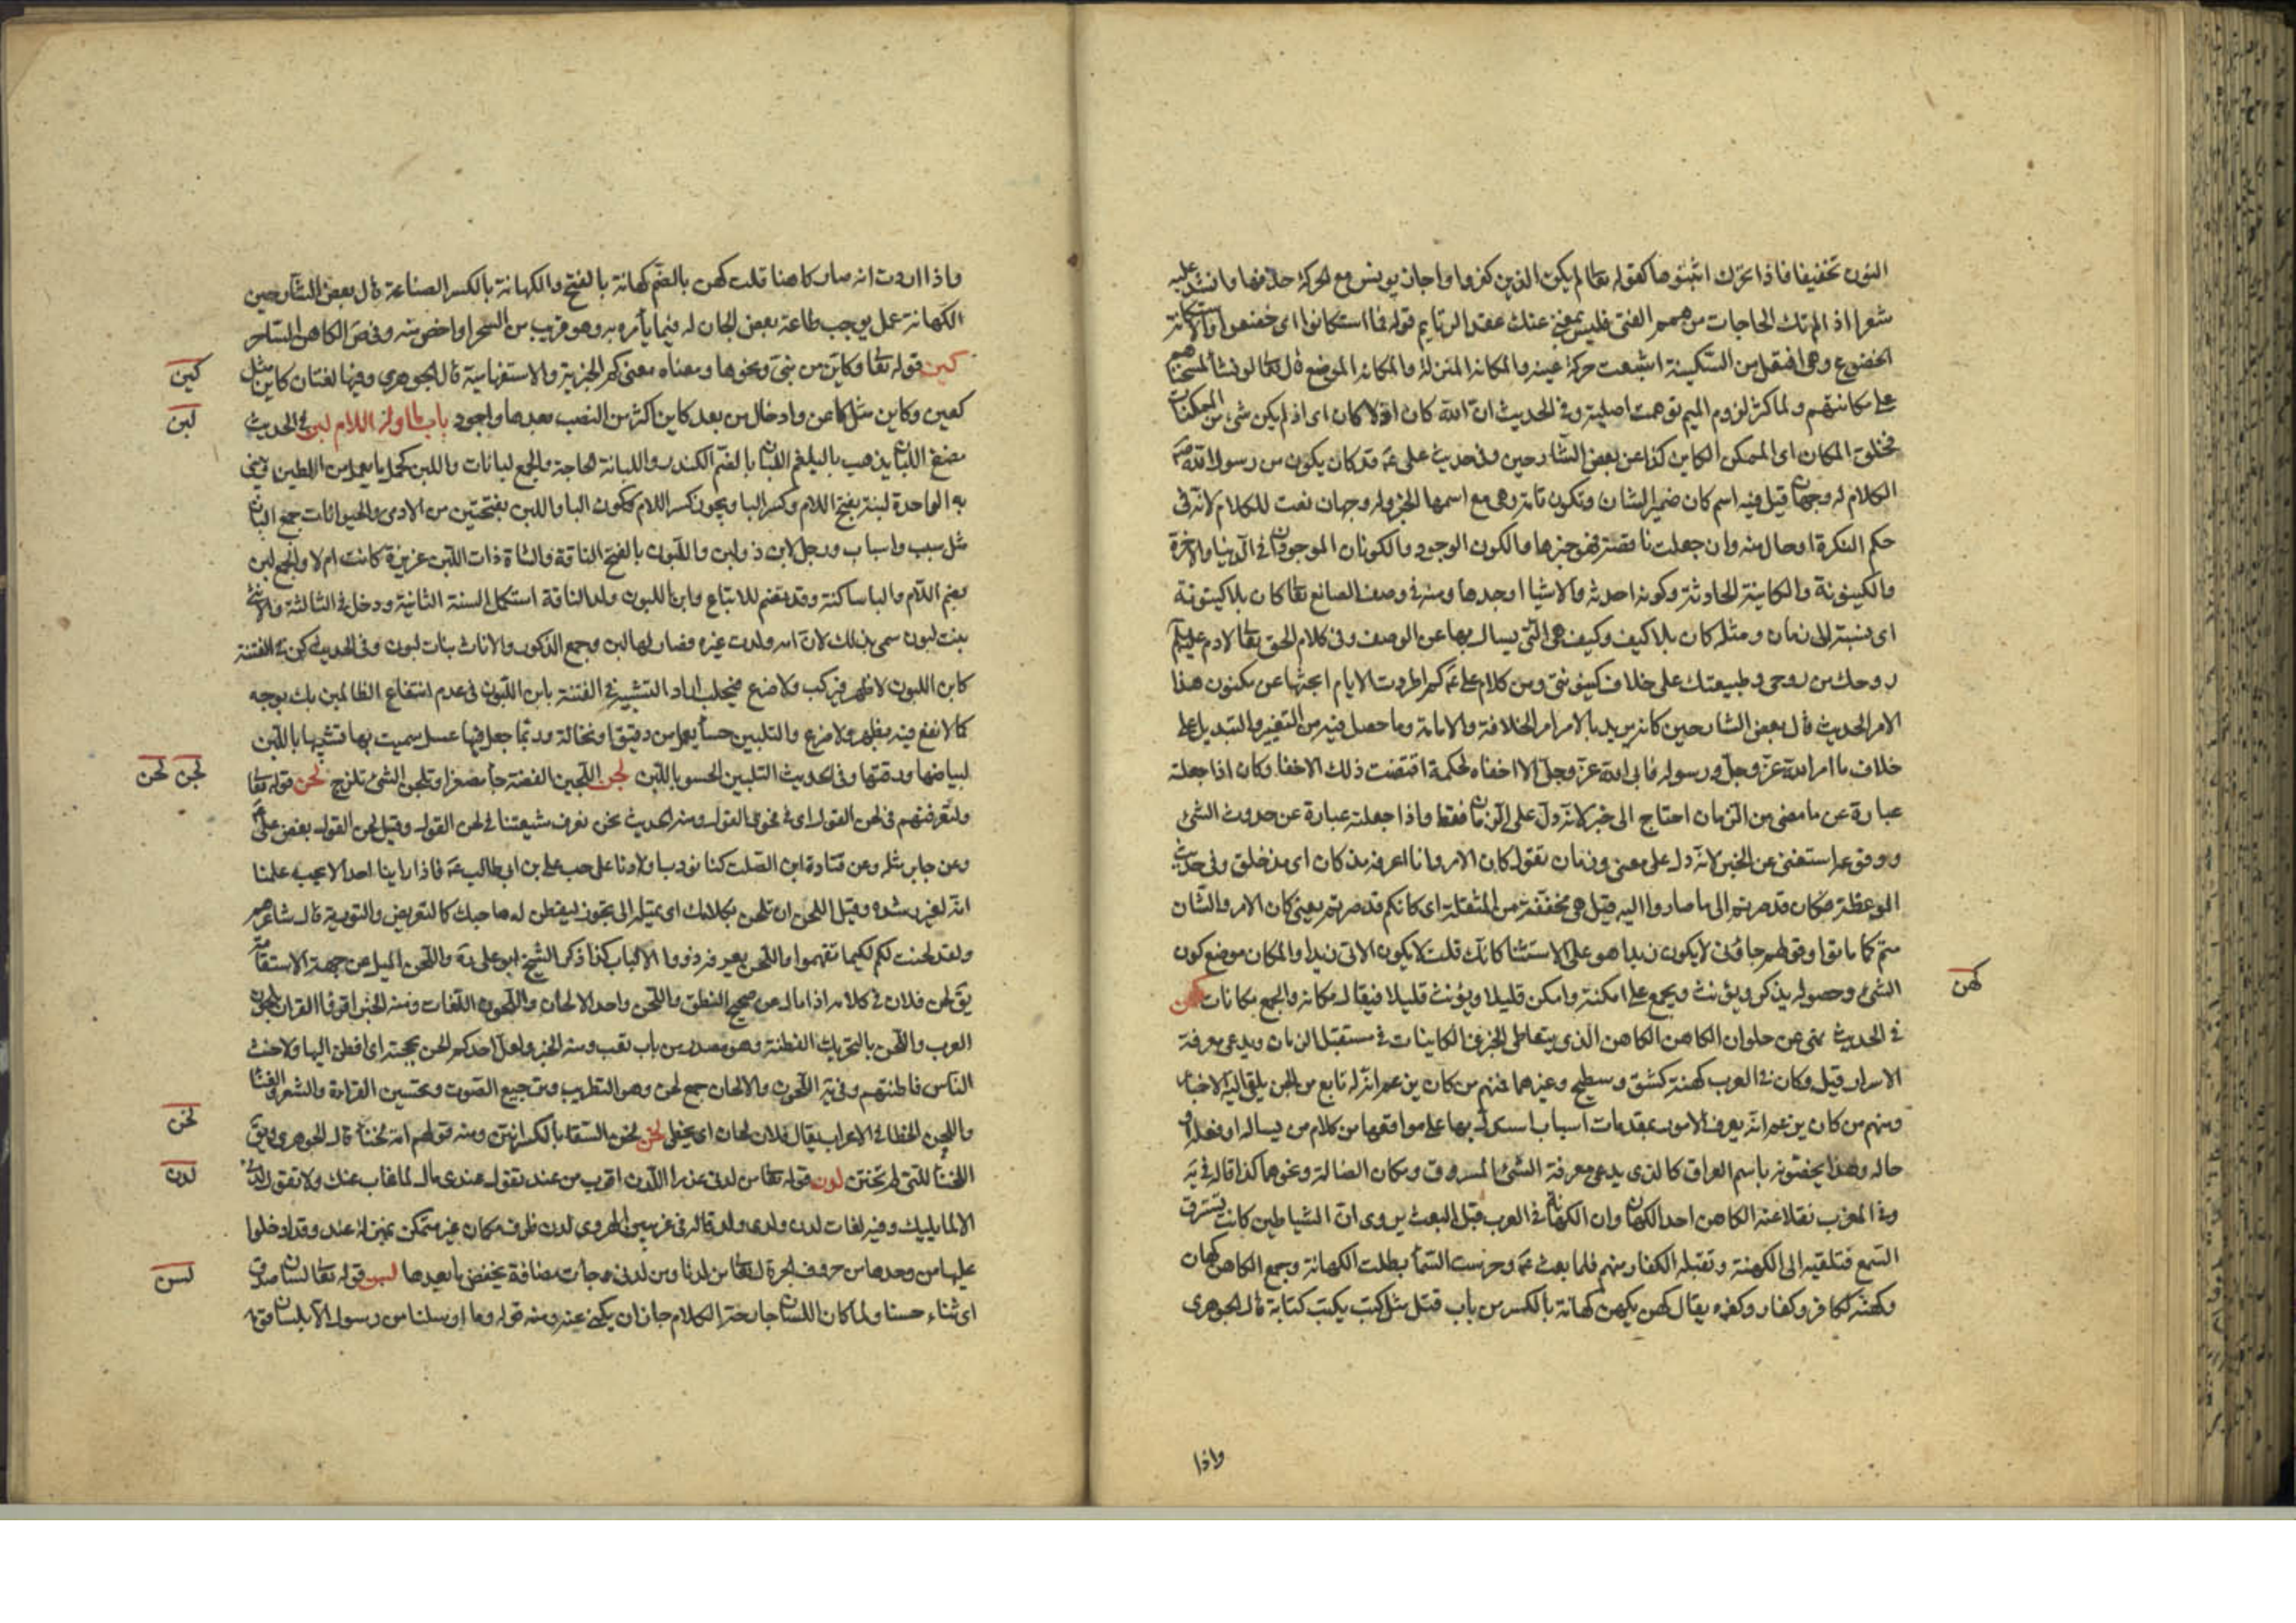 النون تخفيفا فاذا تحرك اثبتوها كقوله تعا لم يكن الذين كفروا واجاز يونس مع الحركة حذفها وانشد عليه
شعرا اذا لم تك الحاجات من همم الفتى فليس بمغن عنك عقد الرتايم قوله فما استكانوا اى خضعوا والاستكانة
الخضوع وهى افتعل من السكينة اشبعت حركة عينه والمكانة المنزلة والمكانة الموضع قال تعا لو نشاء لمسخناهم
على مكانتهم ولما كثر لزوم الميم توهمت اصلية وفى الحديث ان الله كان اذ لا كان اى اذ لم يكن شى من الممكنات
فخلق المكان اى الممكن الكاين كذا عن بعض الشارحين وفى حديث على عم قد كان يكون من رسول الله ص
الكلام له وجهان قيل فيه اسم كان ضمير الشان وتكون تامة وهى مع اسمها الخبر وله وجهان نعت للكلام لانه فى
حكم النكرة او حال منه وان جعلت ناقصة فهو خبرها والكون الوجود والكونان الموجودان فى الدنيا والاخرة
والكينونة والكاينة الحادثة وكونه احدثه والاشيا اوجدها ومنه فى وصف الصانع تعا كان بلا كينونة
اى بنسبة الى زمان ومثله كان بلا كيف وكيف هى التى يسال بها عن الوصف وفى كلام الحق تعا لادم عليه السلم
روحك من روحى وطبيعتك على خلاف كينونتى ومن كلام على عم كم اطردت الايام ابحثها عن مكنون هذا
الامر الحديث قال بعض الشارحين كانه يريد بالامر امر الخلافة والامامة وما حصل فيه من التغيير والتبديل على
خلاف ما امر الله عز وجل ورسوله فابى الله عز وجل الا اخفاه لحكمة اقتضت ذلك الاخفا وكان اذا جعلته
عبارة عن ما مضى من الزمان احتاج الى خبر لانه دل على الزمان فقط واذا جعلته عبارة عن حدوث الشئ
ووقوعه استغنى عن الخبر لانه دل على معنى وزمان تقول كان الامر وانا اعرفه مذ كان اى مذ خلق وفى حديث
الموعظة فكان قد صرتم الى ما صاروا اليه قيل هى مخففة من المثقلة اى كانكم قد صرتم يعنى كان الامر والشان
متم كما ماتوا وقولهم جاؤنى لا يكون زيدا هو على الاستثنا كانك قلت لا يكون الاتى زيدا والمكان موضع كون
الشئ وحصوله يذكر ويؤنث ويجمع على امكنة وامكن قليلا ويؤنث قليلا فيقال مكانه والجمع مكانات كهن
كهن
فى الحديث نهى عن حلوان الكاهن الكاهن الذى يتعاطى الخبر عن الكاينات فى مستقبل الزمان ويدعى معرفة
الاسرار قيل وكان فى العرب كهنة كشق وسطيح وغيرهما فمنهم من كان يزعم ان له تابع من الجن يلقى اليه الاخبار
ومنهم من كان يزعم انه يعرف الامور بمقدمات اسباب يستدل بها على مواقعها من كلام من يساله او فعله او
حاله وهذا يخصونه باسم العراف كالذى يدعى معرفة الشئ المسروق ومكان الضالة ونحوهما كذا قاله فى يه
وفى المغرب نقلا عنه الكاهن احد الكهان وان الكهانة فى العرب قبل البعث يروى ان الشياطين كانت تسترق
السمع فتلقيه الى الكهنة وتقبله الكفار منهم فلما بعث عم وحرست السما بطلت الكهانة وجمع الكاهن كهان
وكهنة ككافر وكفار وكفره يقال كهن يكهن كهانة بالكسر من باب قتل مثل كتب يكتب كتابة قال الجوهرى
واذا
واذا اردت انه صار كاهنا قلت كهن بالضم كهانة بالفتح والكهانة بالكسر الصناعة قال بعض الشارحين
الكهانة عمل يوجب طاعة بعض الجان له فيما يأمره به وهو قريب من السحر او اخص منه وفى ص الكاهن الساحر
كين قوله تعا وكاين من نبى ونحوها ومعناه معنى كم الخبرية والاستفهامية قال الجوهرى وفيها لغتان كاين مثل
كين
كعين وكاين مثل كاعن وادخال من بعد كاين اكثر من النصب بعدها واجود باب ما اوله اللام لبن فى الحديث
لبن
مضغ اللبان يذهب بالبلغم اللبان بالضم الكندر واللبانة الحاجة والجمع لبانات واللبن كحمل ما يعمل من الطين ويبنى
به الواحدة لبنة بفتح اللام وكسر البا ويجوز كسر اللام وسكون البا واللبن بفتحتين من الادمى والحيوانات جمع البان
مثل سبب واسباب ورجل لابن ذو لبن واللبون بالفتح الناقة والشاة ذات اللبن غزيرة كانت ام لا والجمع لبن
بضم اللام والبا ساكنة وقد تضم للاتباع وابن اللبون ولد الناقة استكمل السنة الثانية ودخل فى الثالثة والانثى
بنت لبون سمى بذلك لان امه ولدت غيره فصار لها لبن وجمع الذكور والاناث بنات لبون وفى الحديث كن فى الفتنة
كابن اللبون لا ظهر فيركب ولا ضرع فيحلب اراد التشبيه فى الفتنة بابن اللبون فى عدم انتفاع الظالمين بك بوجه
كما لا نفع فيه بظهر ولا ضرع والتلبين حسا يعمل من دقيق او نخالة وربما جعل فيها عسل سميت بها تشبيها باللبن
لبياضها ورقتها وفى الحديث التلبين الحسو باللبن لجن اللجين الفضة جا مصغرا وتلجن الشئ تلزج لحن قوله تعا
لجن لحن
ولتعرفنهم فى لحن القول اى فى فحوى القول ومنه الحديث نحن نعرف شيعتنا فى لحن القول وقيل لحن القول بغض على عم
وعن جابر مثله وعن قتادة ابن الصلت كنا نودب اولادنا على حب على بن ابى طالب عم فاذا راينا احدا لا يحبه علمنا
انه لغير رشده وقيل اللحن ان تلحن بكلامك اى تميله الى نحو ليفطن له صاحبك كالتعريض والتورية قال شاعرهم
ولقد لحنت لكم لكيما تفهموا واللحن يعرفه ذووا الالباب كذا ذكر الشيخ ابو على ره واللحن الميل عن جهة الاستقامة
يق لحن فلان فى كلامه اذا مال عن صحيح النطق واللحن واحد الالحان واللحون اللغات ومنه الخبر اقرؤا القران بلحون
العرب واللحن بالتحريك الفطنة وهو مصدر من باب تعب ومنه الخبر ولعل احدكم الحن بحجته اى افطن اليها ولاحنت
الناس فاطنتهم وفى يه اللحون والالحان جمع لحن وهو التطريب وترجيع الصوت وتحسين القراءة والشعر والغنا
واللحن الخطا فى الاعراب يقال فلان لحان اى يخطى لخن لخن السقا بالكسر انتن ومنه قولهم امة لخناء قال الجوهرى ويق
لخن
اللخناء التى لم تختن لدن قوله تعا من لدنى عذرا اللدن اقرب من عند تقول عندى مال لما غاب عنك ولا تقول لدى
لدن
الا لما يليك وفيه لغات لدن ولدى ولد قاله فى غريبى الهروى لدن ظرف مكان غير متمكن بمنزلة عند وقد ادخلوا
عليها من وحدها من حروف الجر قال تعا من لدنا ومن لدنى وجات مضافة يخفض ما بعدها لسن قوله تعا لسان صدق
لسن
اى ثناء حسنا ولما كان اللسان جارحة الكلام جاز ان يكنى عنه ومنه قوله وما ارسلنا من رسول الا بلسان قومه